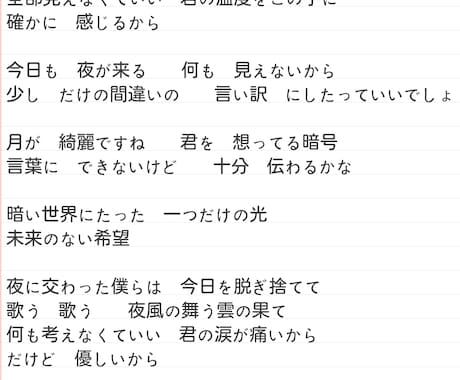 全部見えなくていい　君の温度をこの手に
確かに　感じるから
今日も　夜が来る　　何も　見えないから
少し　だけの間違いの　　言い訳　にしたっていいでしょ
月が　綺麗ですね　　君を　想ってる暗号
言葉に　できないけど　　十分　伝わるかな
暗い世界にたった　一つだけの光
未来のない希望
夜に交わった僕らは　今日を脱ぎ捨てて
歌う　歌う　　夜風の舞う雲の果て
何も考えなくていい　君の涙が痛いから
だけど　優しいから